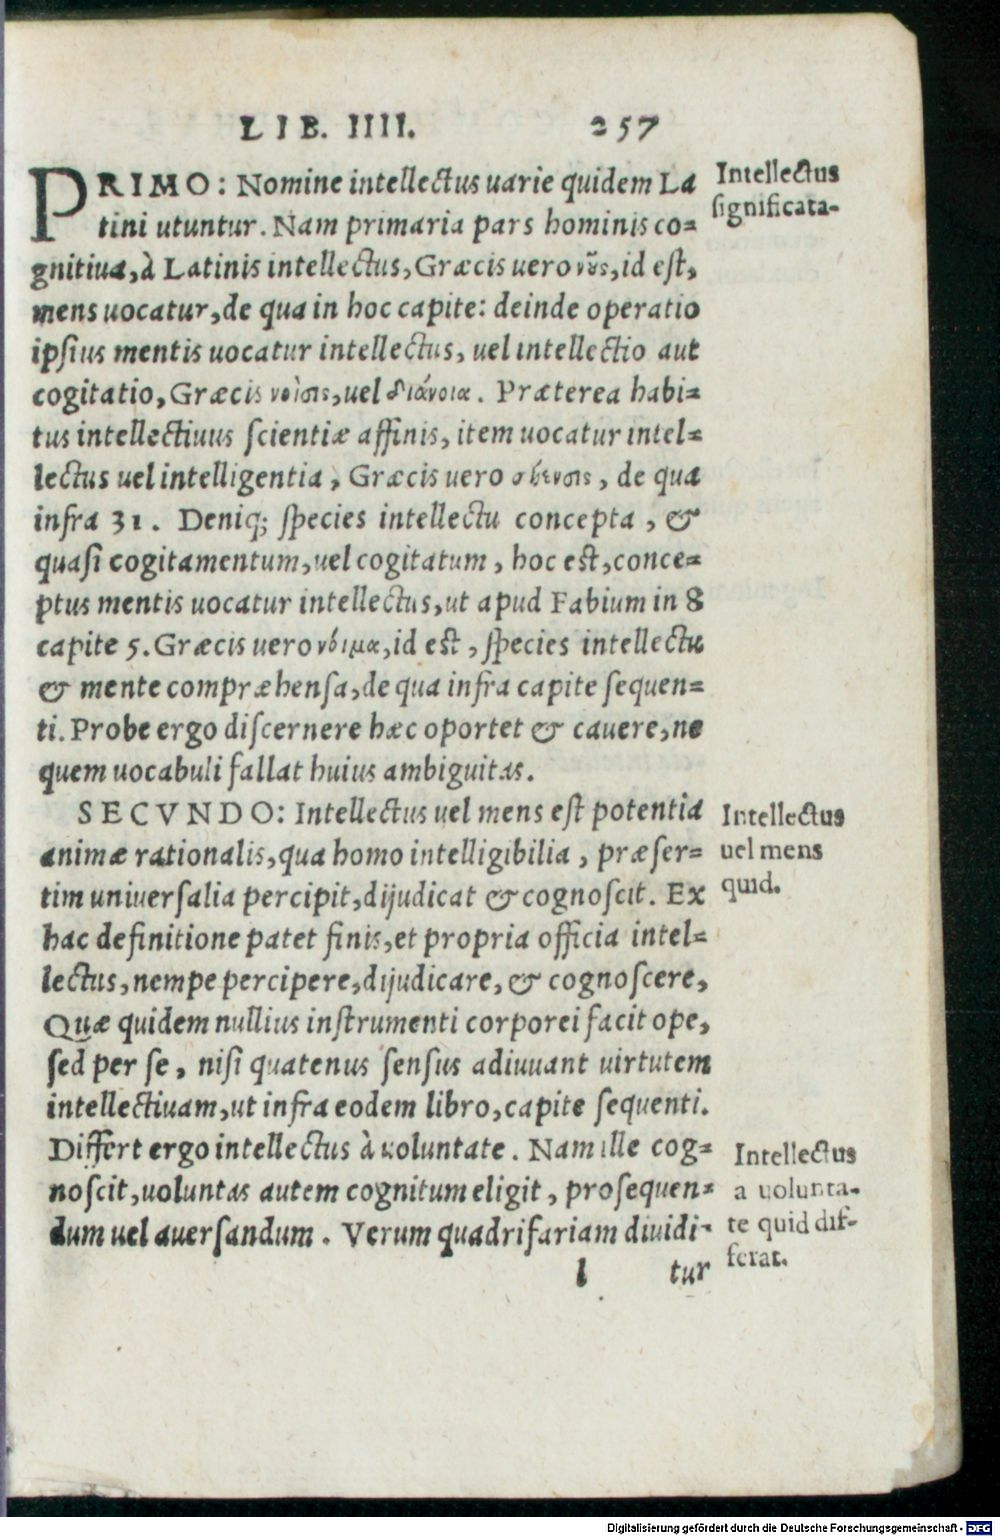 LIB. IIII. 257
PRIMO: Nomine intellectus uarie quidem La
tini utuntur. Nam primaria pars hominis co=
gnitiua, à Latinis intellectus, Græcis uero νῦς, id est,
mens uocatur, de qua in hoc capite: deinde operatio
ipsius mentis uocatur intellectus, uel intellectio aut
cogitatio, Græcis νοὶσις, uel διάνοια. Præterea habi=
tus intellectiuus scientiæ affinis, item uocatur intel=
lectus uel intelligentia, Græcis uero σύνεσις, de qua
infra 31. Deniq; species intellectu concepta, &
quasi cogitamentum, uel cogitatum, hoc est, conce=
ptus mentis uocatur intellectus, ut apud Fabium in 8
capite 5. Græcis uero νόιμα, id est, species intellectu
& mente compræhensa, de qua infra capite sequen=
ti. Probe ergo discernere hæc oportet & cauere, ne
quem uocabuli fallat huius ambiguitas.
SECVNDO: Intellectus uel mens est potentia
animæ rationalis, qua homo intelligibilia, præser=
tim uniuersalia percipit, dijudicat & cognoscit. Ex
hac definitione patet finis, et propria officia intel=
lectus, nempe percipere, dijudicare, & cognoscere,
Quæ quidem nullius instrumenti corporei facit ope,
sed per se, nisi quatenus sensus adiuuant uirtutem
intellectiuam, ut infra eodem libro, capite sequenti.
Differt ergo intellectus à uoluntate. Nam ille cog=
noscit, uoluntas autem cognitum eligit, prosequen=
dum uel auersandum. Verum quadrifariam diuidi-
l tur
Intellectus
significata-
Intellectus
uel mens
quid.
Intellectus
a uolunta-
te quid dif-
ferat.
Digitalisierung gefördert durch die Deutsche Forschungsgemeinschaft - DFG